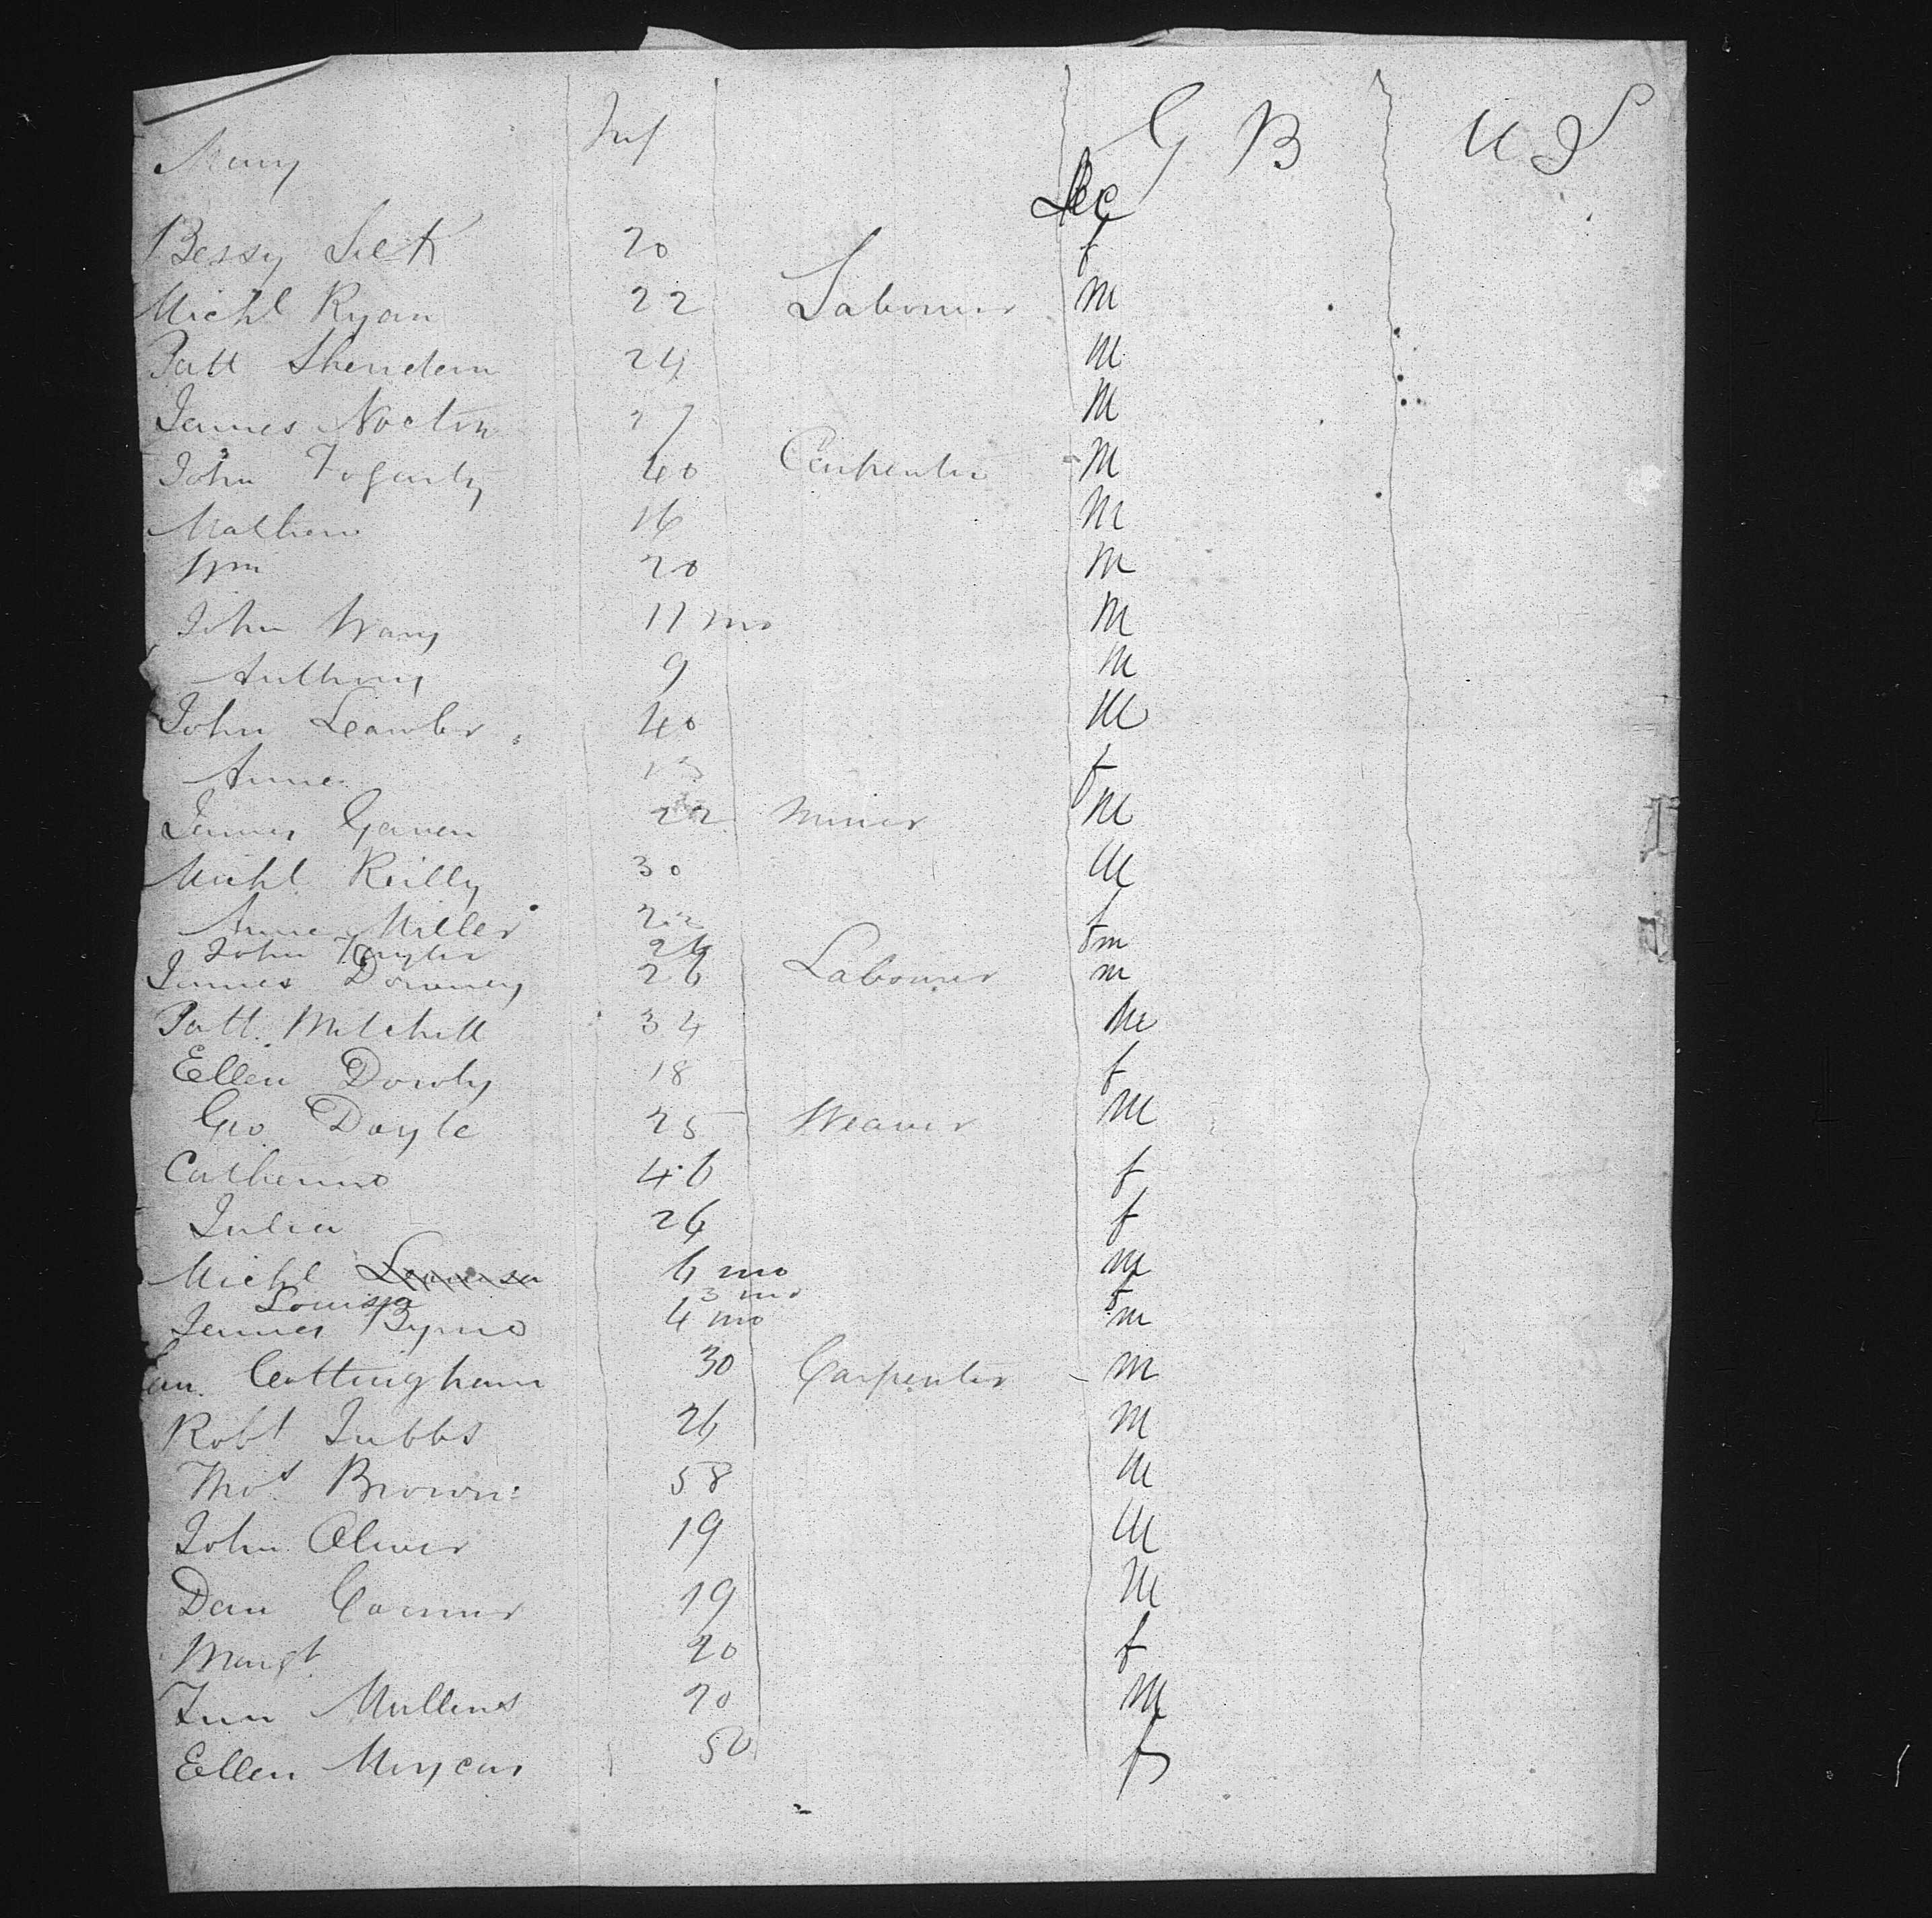 Mary Inf G B U S
Sec
Bessy Silk 20 f
Michl Ryan 22 Labourer m
Patt Sheridan 24 m
James Nocton 27 m
John Fogarty 40 Carpenter m
Mathew 16 m
Wm 20 m
John Wary 11 mo m
Anthony 9 m
John Leawler 40 m
Anne 13 f
James Gaven 22 Miner m
Michl Reilly 30 m
Anne Miller 22 f
John Taylor 26 m
James Downey 26 Labourer m
Patt Mitchell 34 m
Ellen Dowly 18 f
Geo Doyle 25 Weaver m
Catherine 46 f
Julia 26 f
Michl 6 mo m
Louisa 3 mo f
James Byrne 4 mo m
Cottingham 30 Carpenter m
Robt Tubbs 26 m
Thos Brown 58 m
John Oliver 19 m
Dan Connor 19 m
Margt 20 f
Mullins 20 m
Ellen 50 f